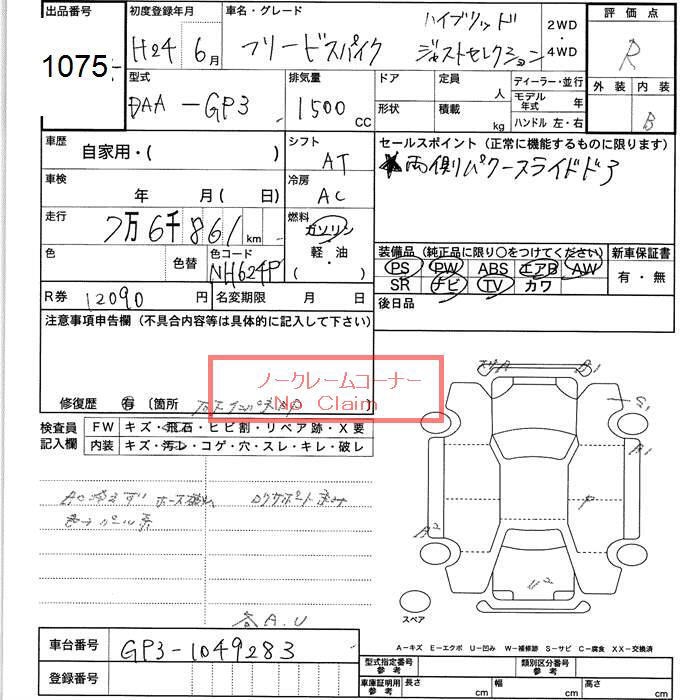 出品番号 初度登録年月 車名・グレード 2WD ・ 4WD 評価点
1075 H24 6月 フリードスパイク ハイブリッド ジャストセレクション R
型式 排気量 ドア 定員 人 ディーラー・並行 外装 内装
DAA-GP3 1500 CC 形状 積載 kg モデル年式 年 ハンドル 左・右 B
車歴 自家用・( ) シフト AT セールスポイント(正常に機能するものに限ります)
車検 年 月( 日) 冷房 AC ★両側パワースライドドア
走行 7万6千861km 燃料 ガソリン 軽・油 ( )
色 色替 色コード NH624P 装備品(純正品に限り○をつけてください) 新車保証書
PS PW ABS エアB AW 有・無
SR ナビ TV カワ
R券 12090円 名変期限 月 日 後日品
注意事項申告欄(不具合内容等は具体的に記入して下さい)
ノークレームコーナー
No Claim
修復歴 有 〔箇所
検査員記入欄 FW キズ・飛石・ヒビ割・リペア跡・X要
内装 キズ・汚レ・コゲ・穴・スレ・キレ・破レ
A B1
S1
A1
P
A2
U2
スペア
各A.U
A-キズ E-エクボ U-凹み W-補修跡 S-サビ C-腐食 XX-交換済
車台番号 GP3-1049283
登録番号
型式指定番号 参考 類別区分番号 参考
車庫証明用 参考 長さ cm 幅 cm 高さ cm